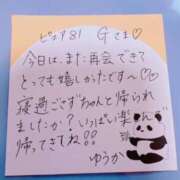 ピュア81 Gさま♡
今日は、また再会できて
とっても嬉しかったです〜♡♡
寝過ごさずちゃんと帰られ
ましたか？いっぱい楽しんで
帰ってきてね!!
ゆうか